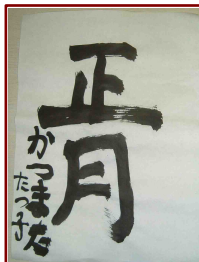 正月
かつまた
たつ子